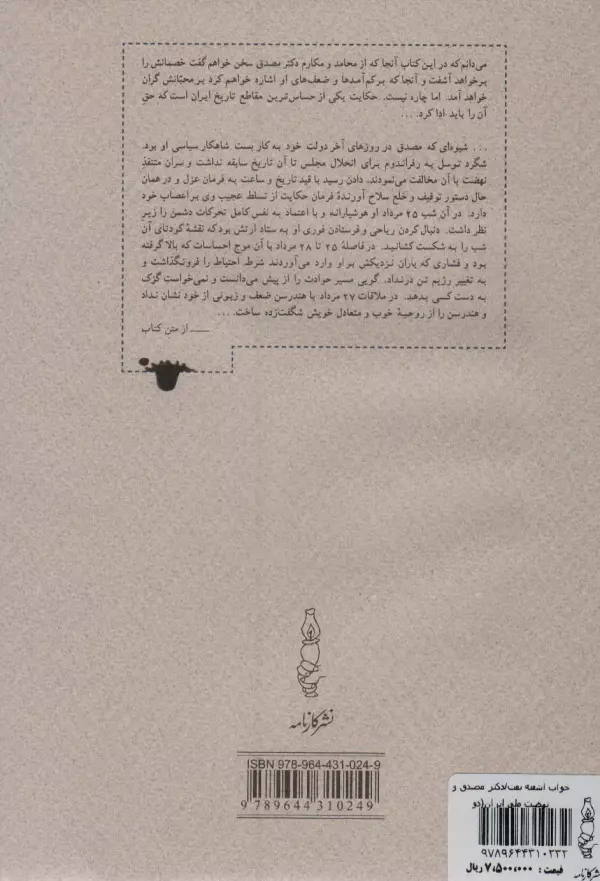 می‌دانم که در این کتاب آنجا که از محامد و مکارم دکتر مصدق سخن خواهم گفت خصمانش را
برخواهد آشفت و آنجا که برکم‌آمدها و ضعف‌های او اشاره خواهم کرد بر محبّانش گران
خواهد آمد. اما چاره نیست. حکایت یکی از حساس‌ترین مقاطع تاریخ ایران است که حقِ
آن را باید ادا کرد. ...
... شیوه‌ای که مصدق در روزهای آخر دولت خود به کار بست شاهکار سیاسی او بود.
شگرد توسل به رفراندوم برای انحلال مجلس تا آن تاریخ سابقه نداشت و سران متنفذِ
نهضت با آن مخالفت می‌نمودند. دادن رسید با قید تاریخ و ساعت به فرمان عزل و در همان
حال دستور توقیف و خلع سلاح آورندهٔ فرمان حکایت از تسلط عجیب وی بر اعصاب خود
دارد. در آن شب ۲۵ مرداد او هوشیارانه و با اعتماد به نفس کامل تحرکات دشمن را زیر
نظر داشت. دنبال کردن ریاحی و فرستادن فوری او به ستاد ارتش بود که نقشهٔ کودتای آن
شب را به شکست کشانید. در فاصلهٔ ۲۵ تا ۲۸ مرداد با آن موج احساسات که بالا گرفته
بود و فشاری که یاران نزدیکش بر او وارد می‌آوردند شرط احتیاط را فرونگذاشت و
به تغییر رژیم تن درنداد. گویی مسیر حوادث را از پیش می‌دانست و نمی‌خواست گزک
به دست کسی بدهد. در ملاقات ۲۷ مرداد با هندرسن ضعف و زبونی از خود نشان نداد
و هندرسن را از روحیهٔ خوب و متعادل خویش شگفت‌زده ساخت. ...
ــــ از متن کتاب
نشر کارنامه
ISBN 978-964-431-024-9
9 789644 310249
خواب آشفته نفت/دکتر مصدق و
نهضت ملی ایران (دو
۹۷۸۹۶۴۴۳۱۰۲۳۲
قیمت : ۷,۵۰۰,۰۰۰ ریال
نشر کارنامه